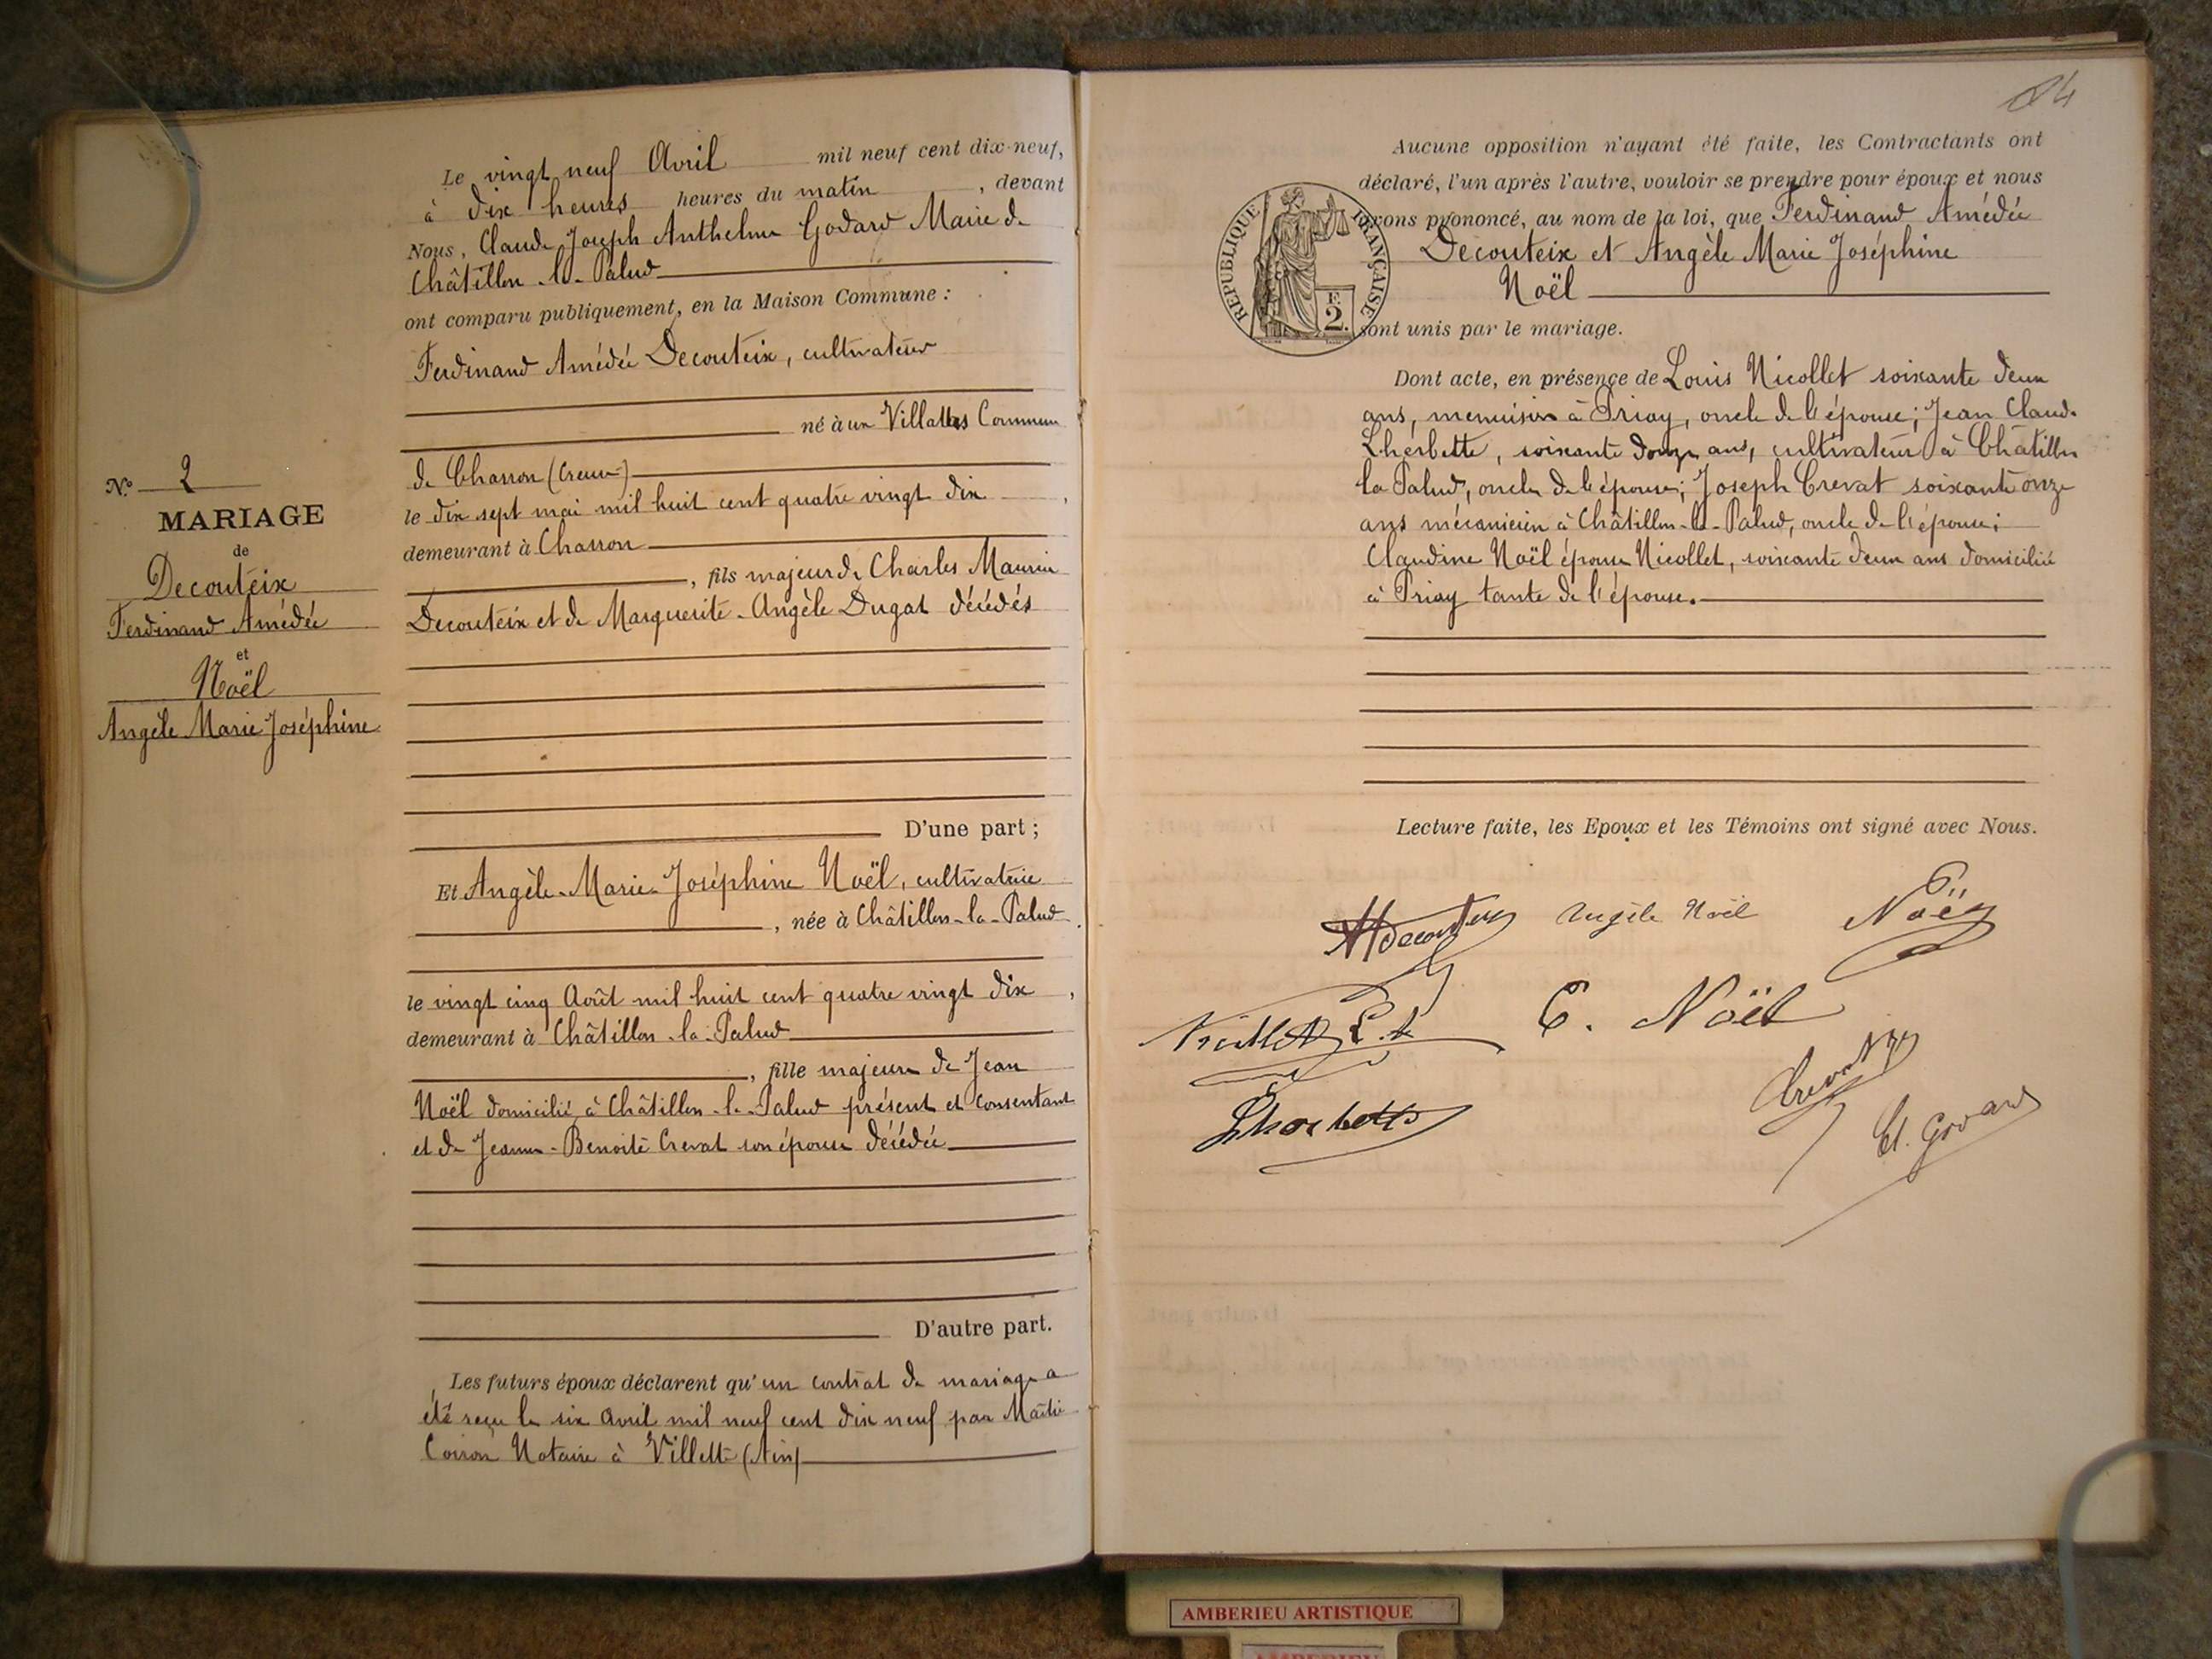 Le vingt neuf Avril mil neuf cent dix-neuf,
à dix heures heures du matin, devant
Nous, Claude Joseph Anthelme Godard Maire de
Châtillon-la-Palud
ont comparu publiquement, en la Maison Commune :
Ferdinand Amédée Decouteix, cultivateur
né à aux Villattes Commune
de Charron (Creuse)
le dix sept mai mil huit cent quatre vingt dix,
demeurant à Charron
, fils majeur de Charles Maurice
Decouteix et de Marguerite-Angèle Dugat décédés
D'une part ;
Et Angèle-Marie-Joséphine Noël, cultivatrice
, née à Châtillon-la-Palud
le vingt cinq Août mil huit cent quatre vingt dix,
demeurant à Châtillon-la-Palud
, fille majeure de Jean
Noël domicilié à Châtillon-la-Palud présent et consentant
et de Jeanne-Benoite Crevat son épouse décédée
D'autre part.
Les futurs époux déclarent qu'un contrat de mariage a
été reçu le six avril mil neuf cent dix neuf par Maître
Notaire à Villette (Ain)
N° 2
MARIAGE
de
Decouteix
Ferdinand Amédée
et
Noël
Angèle Marie Joséphine
Aucune opposition n'ayant été faite, les Contractants ont
déclaré, l'un après l'autre, vouloir se prendre pour époux et nous
avons prononcé, au nom de la loi, que Ferdinand Amédée
Decouteix et Angèle Marie Joséphine
Noël
sont unis par le mariage.
REPUBLIQUE FRANÇAISE
F.
2.
Dont acte, en présence de Louis Nicollet soixante deux
ans, menuisier à Priay, oncle de l'épouse; Jean Claude
Lherbette, soixante douze ans, cultivateur à Châtillon
la Palud, oncle de l'épouse; Joseph Crevat soixante onze
ans mécanicien à Châtillon-la-Palud, oncle de l'épouse;
Claudine Noël épouse Nicollet, soixante deux ans domiciliée
à Priay tante de l'épouse.
Lecture faite, les Epoux et les Témoins ont signé avec Nous.
Angèle Noël Noël
C. Noël
Crevat
Lherbette
Cl. Godard
AMBERIEU ARTISTIQUE
AMBERIEU